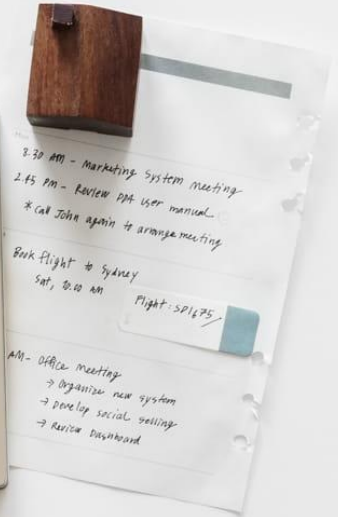 8.30 AM - Marketing System Meeting
2.45 PM - Review PDA user manual
* Call John again to arrange meeting
Book flight to Sydney
Sat, 10.00 AM
Flight: SP1675
AM - Office Meeting
→ Organize new system
→ Develop social selling
→ Review Dashboard